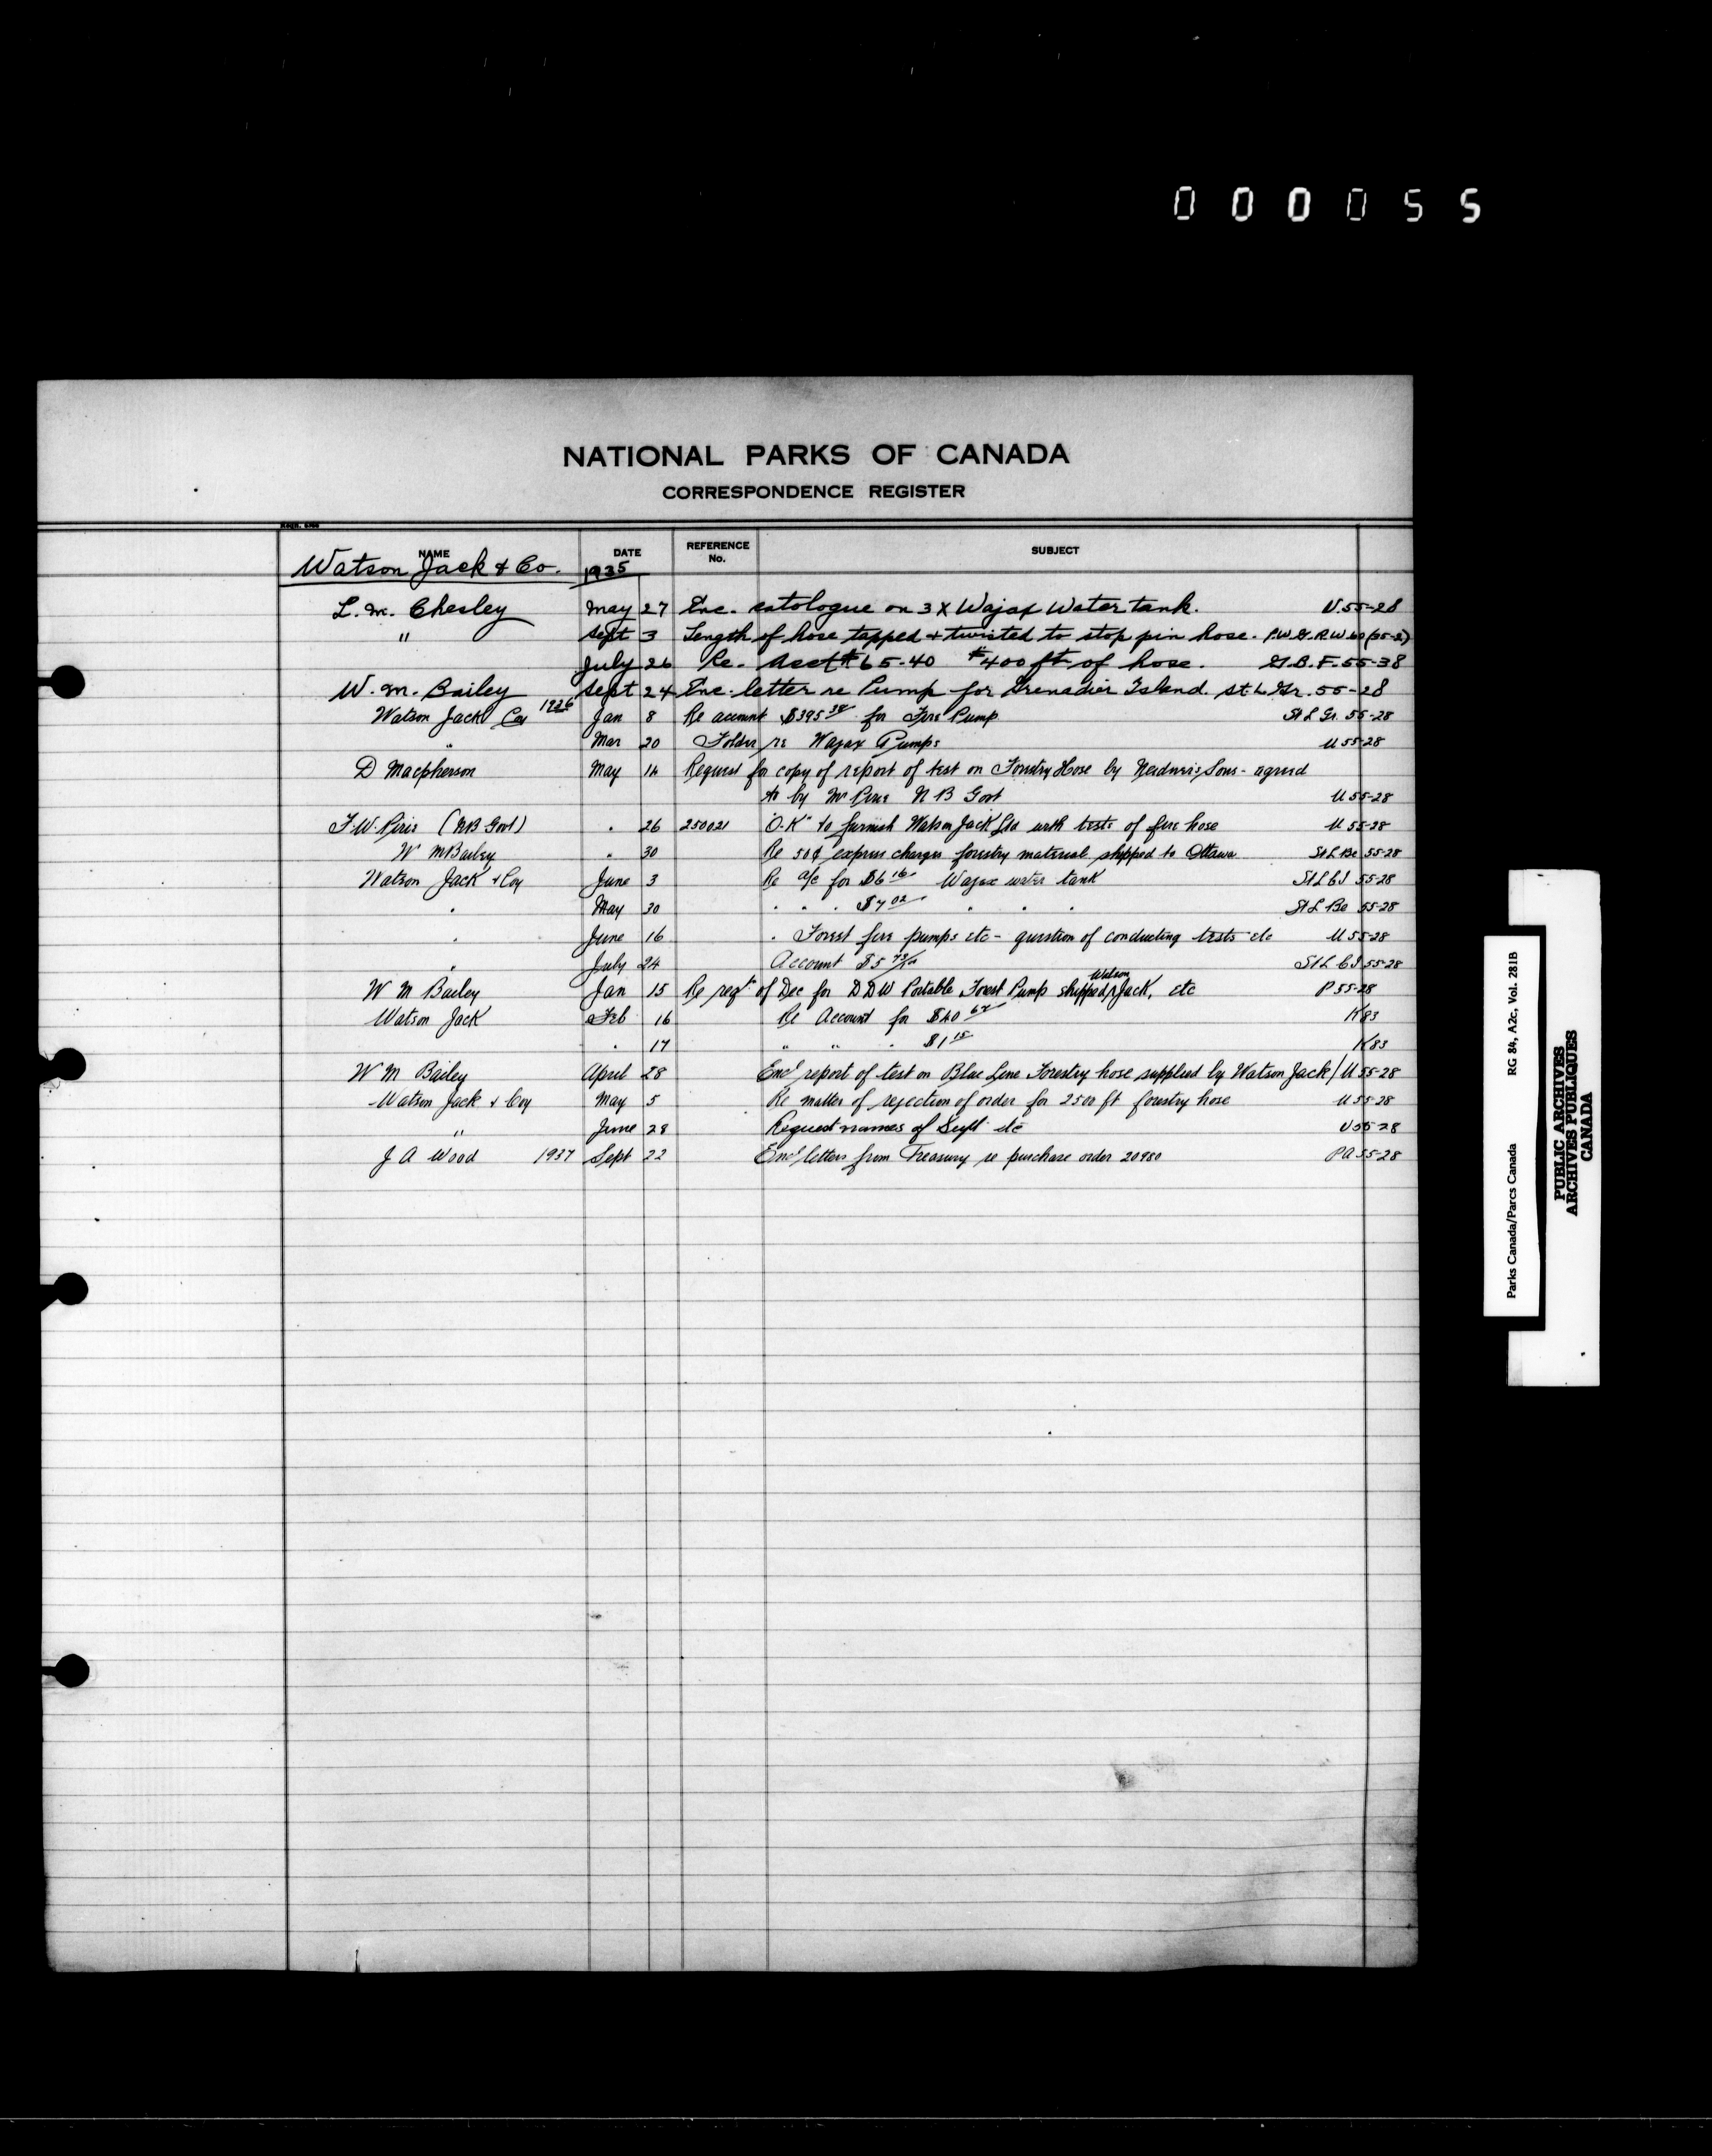 000055
NATIONAL PARKS OF CANADA
CORRESPONDENCE REGISTER
NAME DATE REFERENCE No. SUBJECT
Watson Jack & Co. 1935
L. M. Chesley May 27 Enc. catologue on 3 X Wajax Water tank. U.55-28
" Sept 3 Length of hose tapped & twisted to stop pin hose.
July 26 Re. Acct #65-40 #400 ft of hose. G.B.F. 55-38
W. M. Bailey Sept 24 Enc. letter re Pump for Grenadier Island. St. L. Gr. 55-28
Watson Jack Coy 1936 Jan 8 Re account $395 38 for Fire Pump St L Gr. 55-28
" Mar 20 Folder re Wajax Pumps U 55-28
D Macpherson May 14 Request for copy of report of test on Forestry Hose by Sons - agreed
to by Mr Pirie N B Govt U 55-28
F. W. Pirie (NB Govt) " 26 250021 "O.K" to furnish Watson Jack Ltd with tests of fire hose U 55-28
W M Bailey " 30 Re 50¢ express charges forestry material shipped to Ottawa St L Be 55-28
Watson Jack & Coy June 3 Re a/c for $6 16 Wajax water tank St L C I 55-28
" May 30 " " " $7 02 " " " St L Be 55-28
" June 16 " Forest fire pumps etc - question of conducting tests etc U 55-28
" July 24 Account $5 73/100 St L C I 55-28
W M Bailey Jan 15 Re reqt of Dec for D D W Portable Forest Pump shipped Watson Jack, etc P 55-28
Watson Jack Feb 16 Re Account for $40 67 K83
" 17 " " " $1 15 K83
W M Bailey April 28 Encl report of test on Blue Line Forestry hose supplied by Watson Jack / U 55-28
Watson Jack & Coy May 5 Re matter of rejection of order for 2500 ft forestry hose U 55-28
" June 28 Request names of Supt etc U 55-28
J A Wood 1937 Sept 22 Encl letters from Treasury re purchase order 20980 PA 55-28
Parks Canada/Parcs Canada RG 84, A2c, Vol. 281B
PUBLIC ARCHIVES
ARCHIVES PUBLIQUES
CANADA